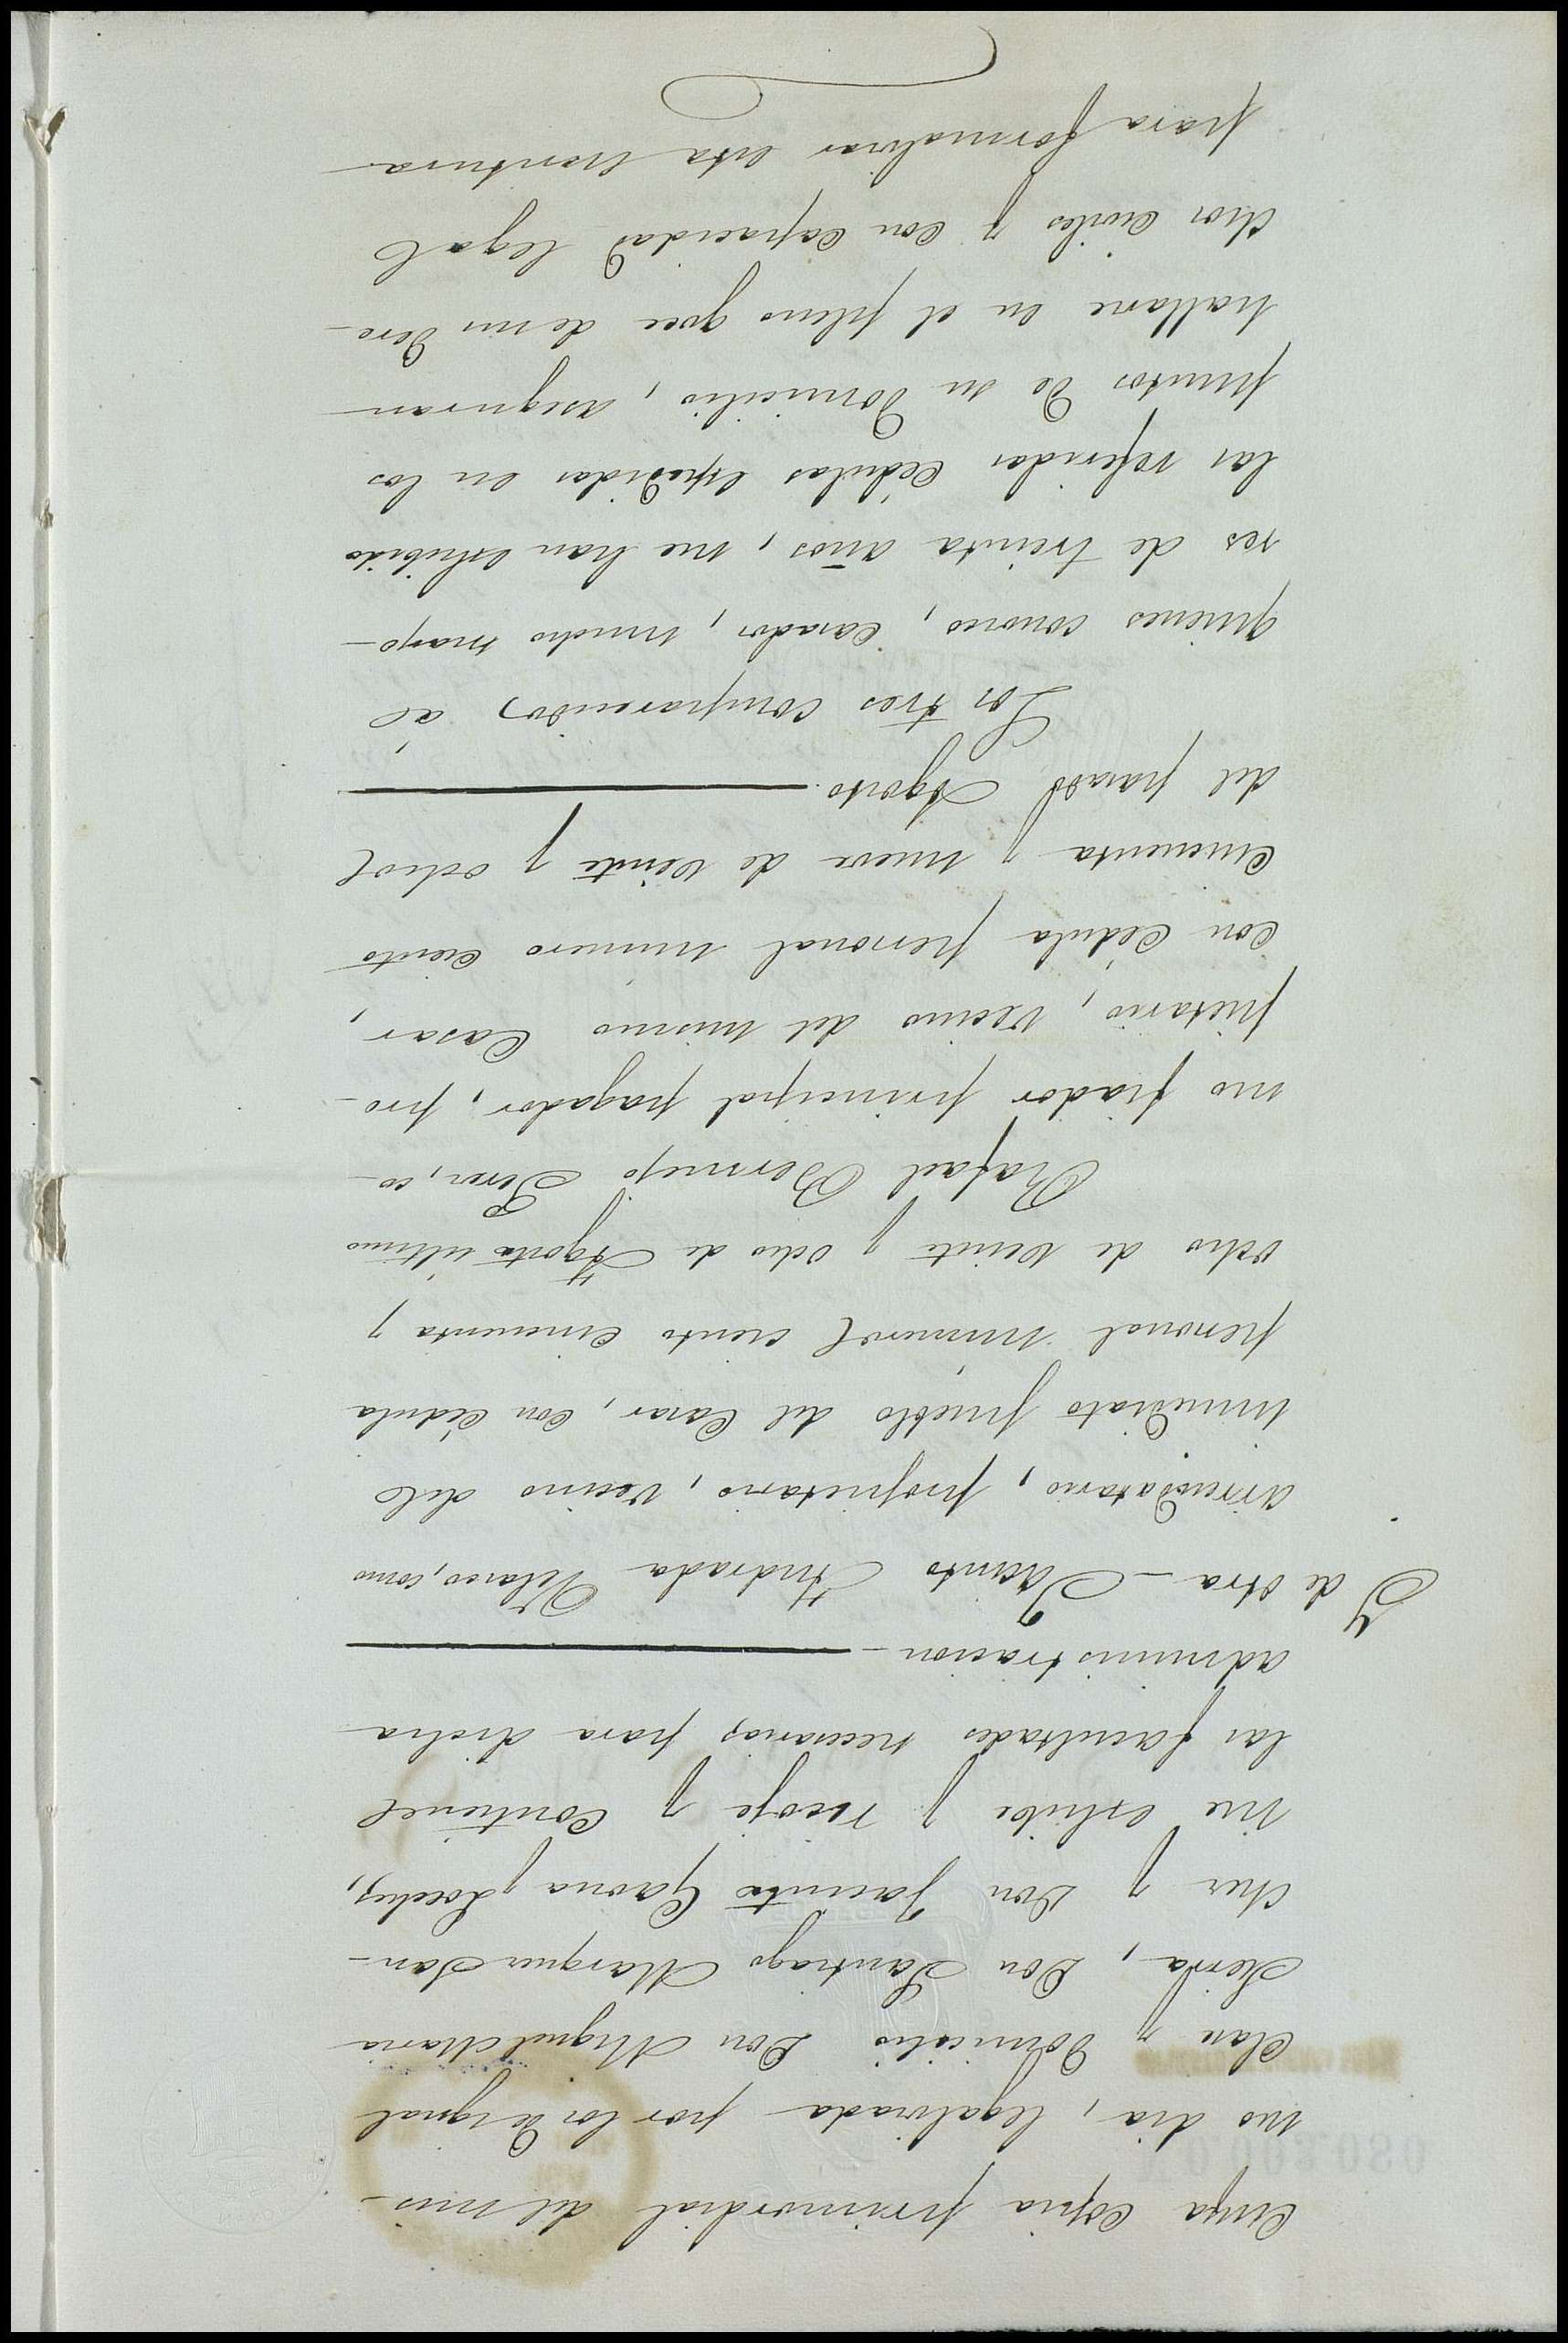 Cuya copia primordial del mis-
mo dia, legalizada por los de igual
clase y domicilio Don Miguel Maria
Neira, Don Santiago Marquez San-
chez y Don Jacinto Gaona y Loeches,
me eshibe y recoje y contiene
las facultades necesarias para dicha
administracion-
Y de otra - Jacinto Andrada Velasco, como
arrendatario, propietario, vecino del
inmediato pueblo del Casar, con cédula
personal número ciento cincuenta y
ocho de veinte y ocho de Agosto último
Rafael Bermejo Perez, co-
mo fiador principal pagador, pro-
pietario, vecino del mismo Casar,
con cédula personal número ciento
cincuenta y nueve de veinte y ocho
del pasado Agosto.
Los tres comparecidos, á
quienes conozco, casados, mucho mayo-
res de treinta años, me han eshibido
las referidas cédulas espedidas en los
puntos de su domicilio, aseguran
hallarse en el pleno goce de sus dere-
chos civiles y con capacidad legal
para formalizar esta escritura